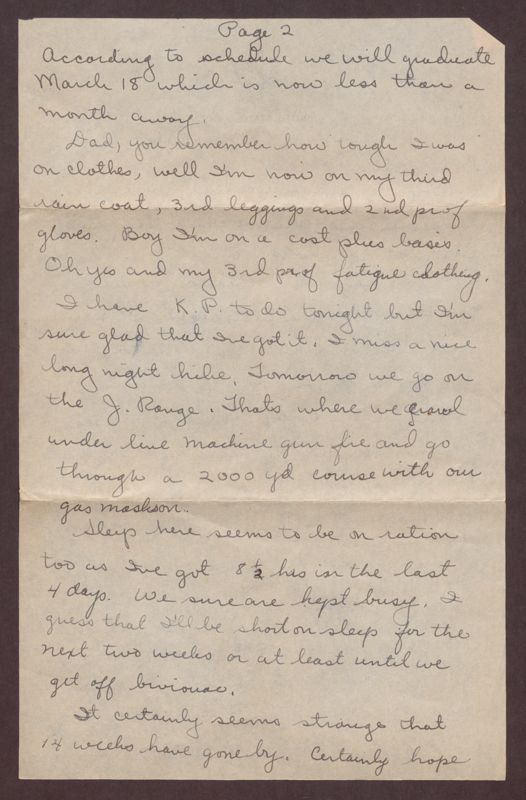 Page 2
According to schedule we will graduate
March 18 which is now less than a
month away.
Dad, you remember how rough I was
on clothes, well I'm now on my third
rain coat, 3rd leggings and 2nd pr of
gloves. Boy I'm on a cost plus basis.
Oh yes and my 3rd pr of fatigue clothing.
I have K.P. to do tonight but I'm
sure glad that I've got it. I miss a nice
long night hike. Tomorrow we go on
the J. Range. Thats where we crawl
under live machine gun fire and go
through a 2000 yd course with our
gas masks on.
Sleep here seems to be on ration
too as I've got 8 1/2 hrs in the last
4 days. We sure are kept busy. I
guess that I'll be short on sleep for the
next two weeks or at least until we
get off biviouac.
It certainly seems strange that
14 weeks have gone by. Certainly hope